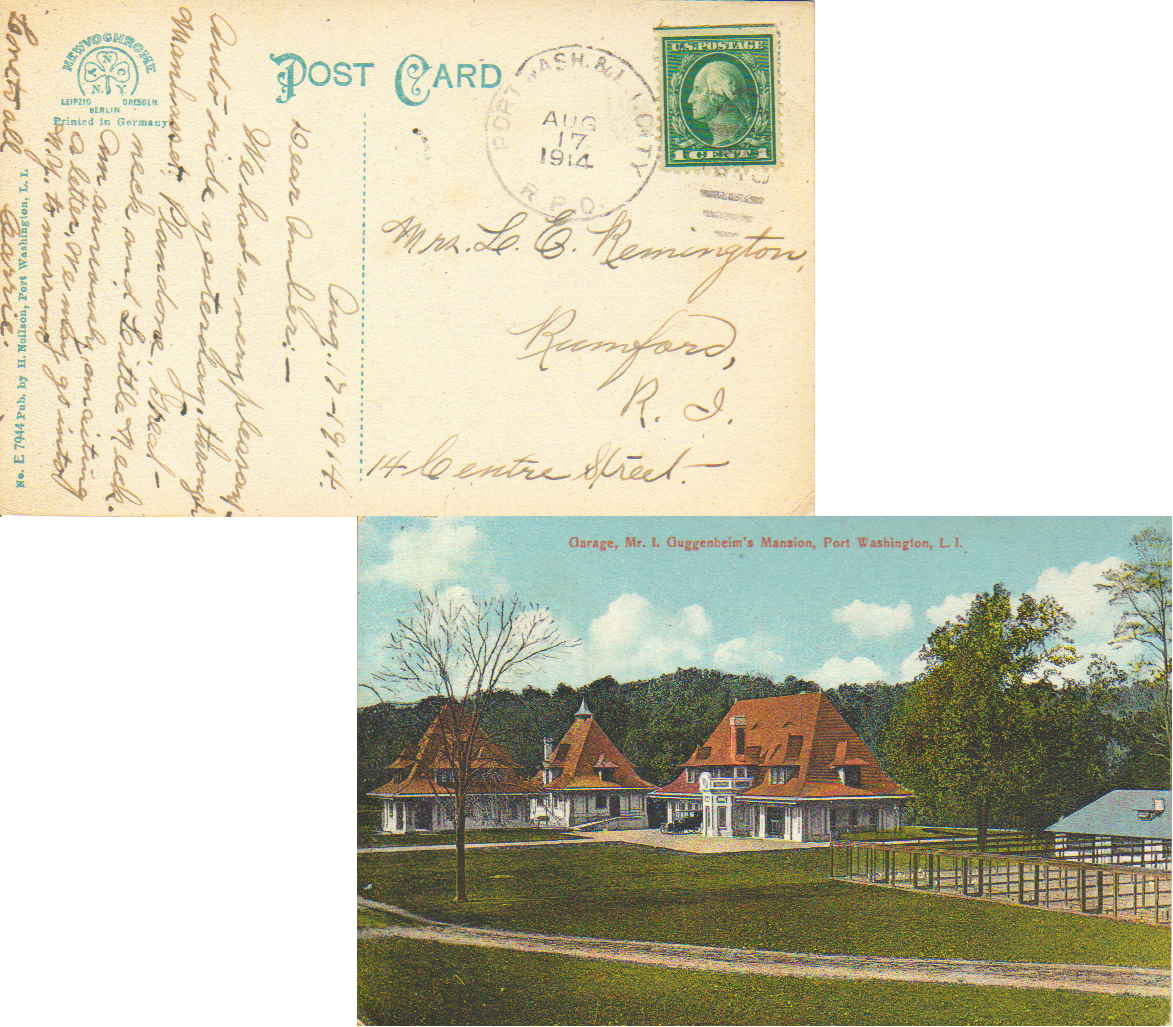 NEWVOCHROME
N Y C
N.Y.
LEIPZIG DRESDEN
BERLIN
Printed in Germany
POST CARD
PORT WASH. & L. I. CITY
AUG
17
1914
R. P. O.
U.S. POSTAGE
1 CENTS 1
Mrs. L. E. Remington,
Rumford,
R. I.
14 Centre Street.
Aug. 17-1914.
Dear Amber:—
We had a very pleasant
auto ride yesterday, through
Manhasset, Plandore, Great-
neck and Little Neck.
Am anxiously awaiting
a letter, We may go into
N.Y. to-morrow
Love to all
Carrie.
No. E 7944 Pub. by H. Neilson, Port Washington, L. I.
Garage, Mr. I. Guggenheim's Mansion, Port Washington, L. I.